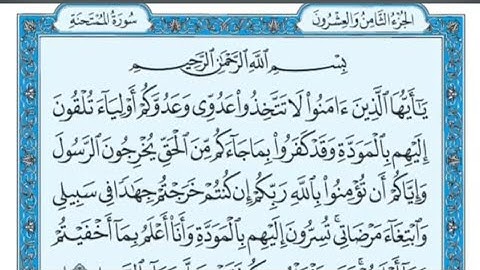 الجزء الثامن والعشرون
سورة الممتحنة
بِسْمِ اللَّهِ الرَّحْمَٰنِ الرَّحِيمِ
يَٰٓأَيُّهَا الَّذِينَ ءَامَنُوا۟ لَا تَتَّخِذُوا۟ عَدُوِّى وَعَدُوَّكُمْ أَوْلِيَآءَ تُلْقُونَ
إِلَيْهِم بِالْمَوَدَّةِ وَقَدْ كَفَرُوا۟ بِمَا جَآءَكُم مِّنَ الْحَقِّ يُخْرِجُونَ الرَّسُولَ
وَإِيَّاكُمْ أَن تُؤْمِنُوا۟ بِاللَّهِ رَبِّكُمْ إِن كُنتُمْ خَرَجْتُمْ جِهَٰدًا فِى سَبِيلِى
وَابْتِغَآءَ مَرْضَاتِى ۚ تُسِرُّونَ إِلَيْهِم بِالْمَوَدَّةِ وَأَنَا۠ أَعْلَمُ بِمَآ أَخْفَيْتُمْ